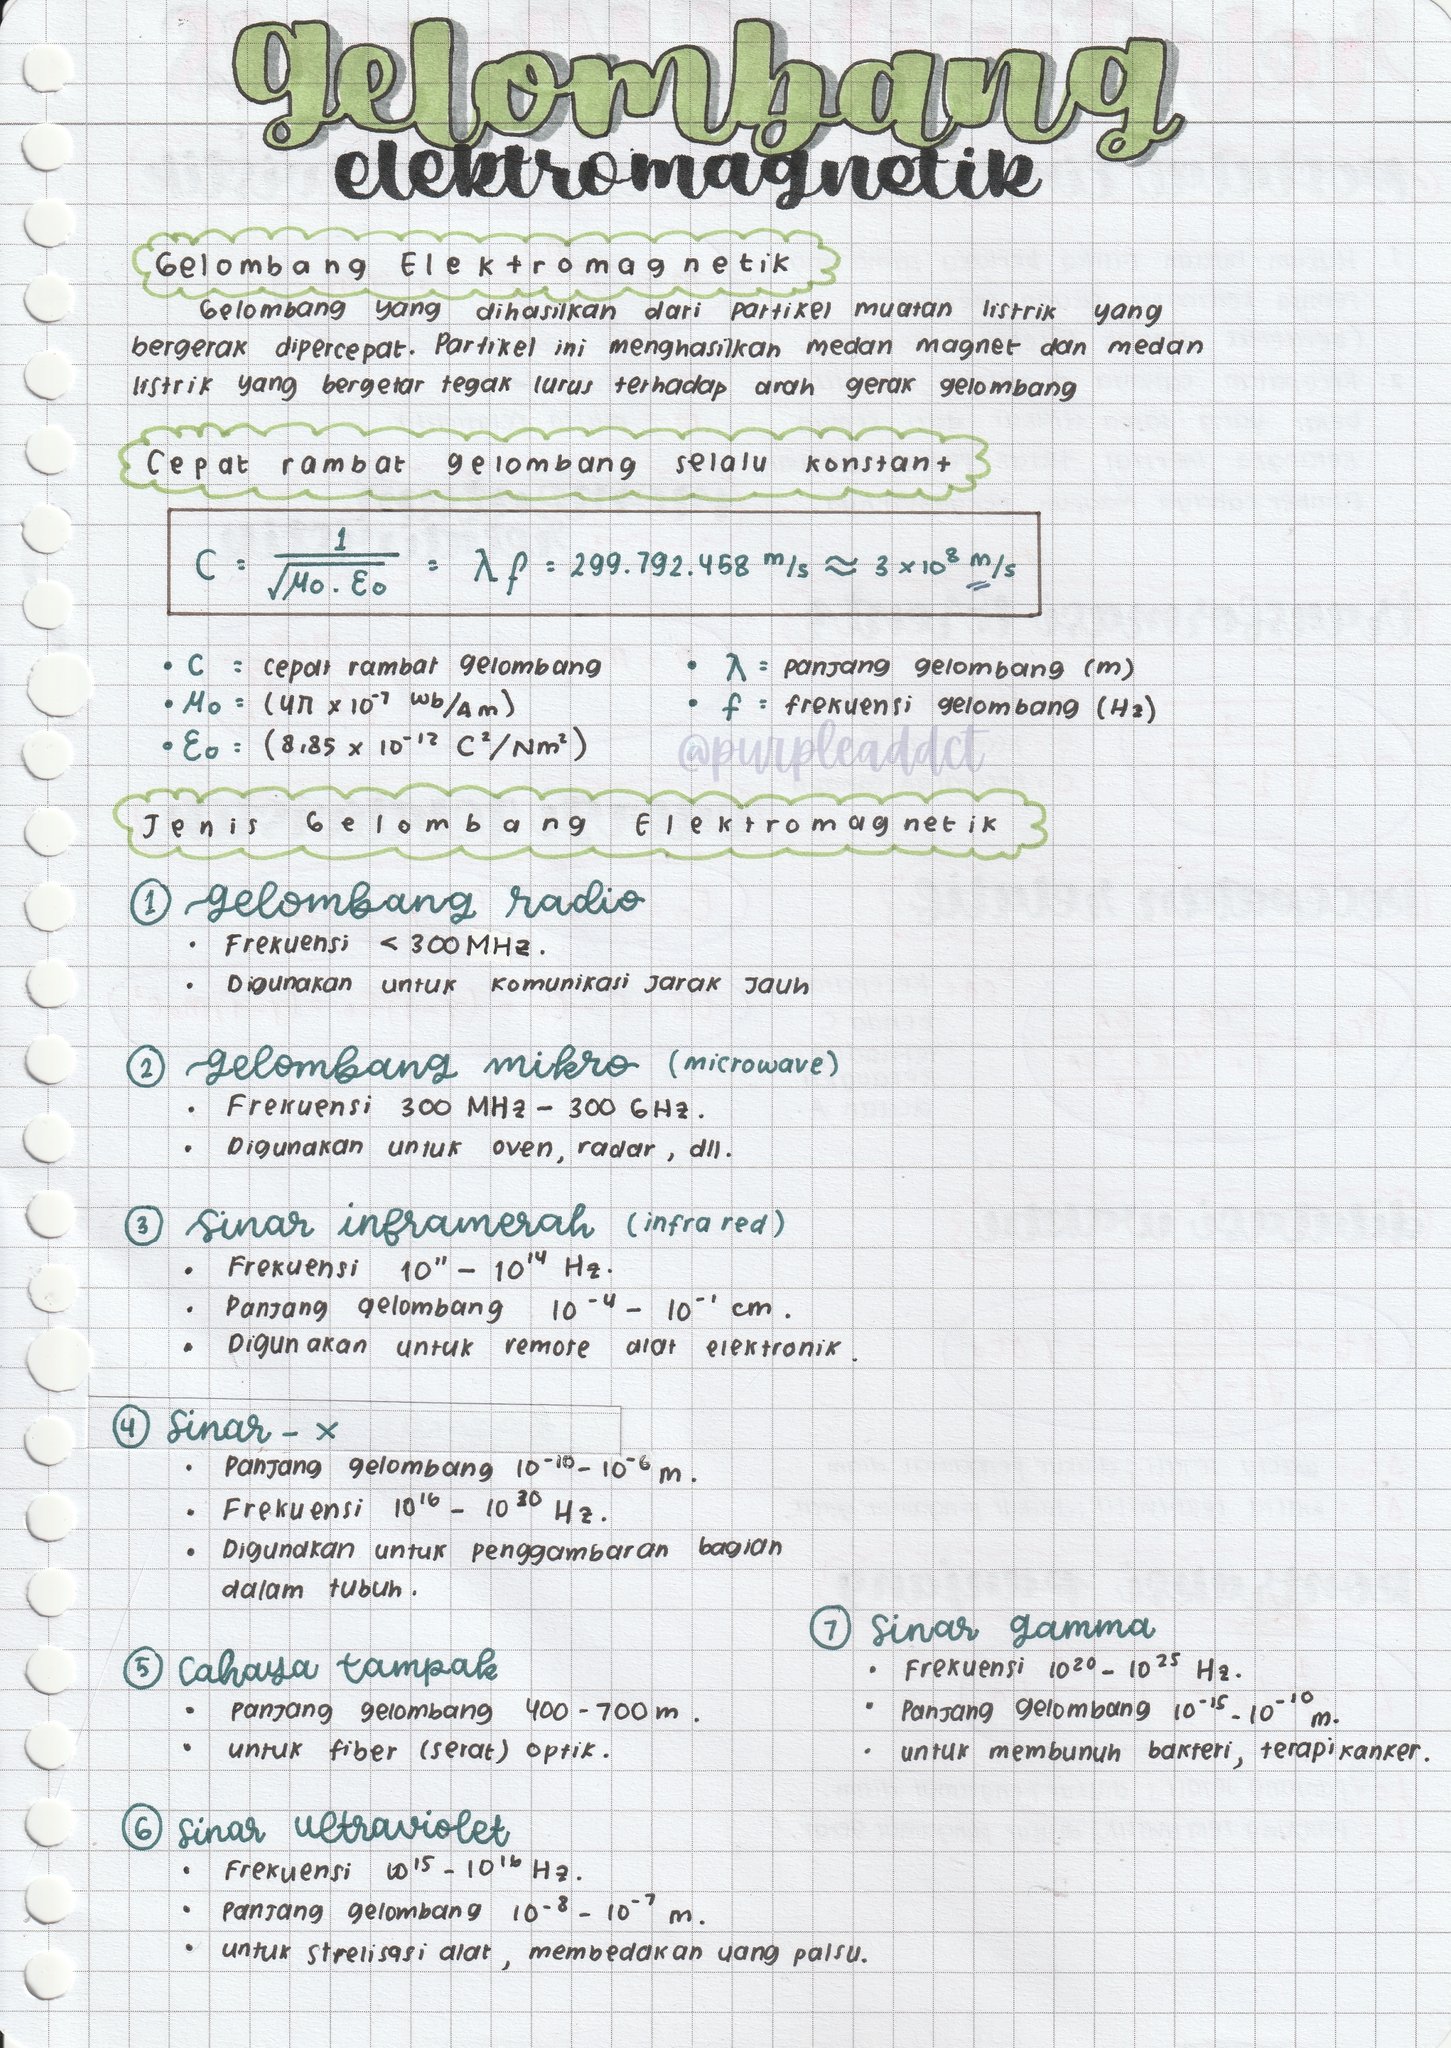 gelombang
elektromagnetik
Gelombang Elektromagnetik
Gelombang yang dihasilkan dari partikel muatan listrik yang
bergerak dipercepat. Partikel ini menghasilkan medan magnet dan medan
listrik yang bergetar tegak lurus terhadap arah gerak gelombang
Cepat rambat gelombang selalu konstant
C = 1/√μ₀.ε₀ = λ f = 299.792.458 m/s ≈ 3 × 10⁸ m/s
• C = cepat rambat gelombang
• μ₀ = (4π × 10⁻⁷ wb/Am)
• ε₀ = (8,85 × 10⁻¹² C²/Nm²)
• λ = panjang gelombang (m)
• f = frekuensi gelombang (Hz)
@purpleaddct
Jenis Gelombang Elektromagnetik
① gelombang radio
• Frekuensi < 300 MHz.
• Digunakan untuk komunikasi Jarak Jauh
② gelombang mikro (microwave)
• Frekuensi 300 MHz – 300 GHz.
• Digunakan untuk oven, radar, dll.
③ Sinar inframerah (infra red)
• Frekuensi 10¹¹ – 10¹⁴ Hz.
• Panjang gelombang 10⁻⁴ – 10⁻¹ cm.
• Digunakan untuk remote alat elektronik.
④ Sinar – x
• Panjang gelombang 10⁻¹⁰ – 10⁻⁶ m.
• Frekuensi 10¹⁶ – 10²⁰ Hz.
• Digunakan untuk penggambaran bagian
dalam tubuh.
⑤ Cahaya tampak
• Panjang gelombang 400 – 700 m.
• untuk fiber (serat) optik.
⑥ Sinar ultraviolet
• Frekuensi 10¹⁵ – 10¹⁶ Hz.
• Panjang gelombang 10⁻⁸ – 10⁻⁷ m.
• untuk strelisasi alat, membedakan uang palsu.
⑦ Sinar gamma
• Frekuensi 10²⁰ – 10²⁵ Hz.
• Panjang gelombang 10⁻¹⁵ – 10⁻¹⁰ m.
• untuk membunuh bakteri, terapi kanker.